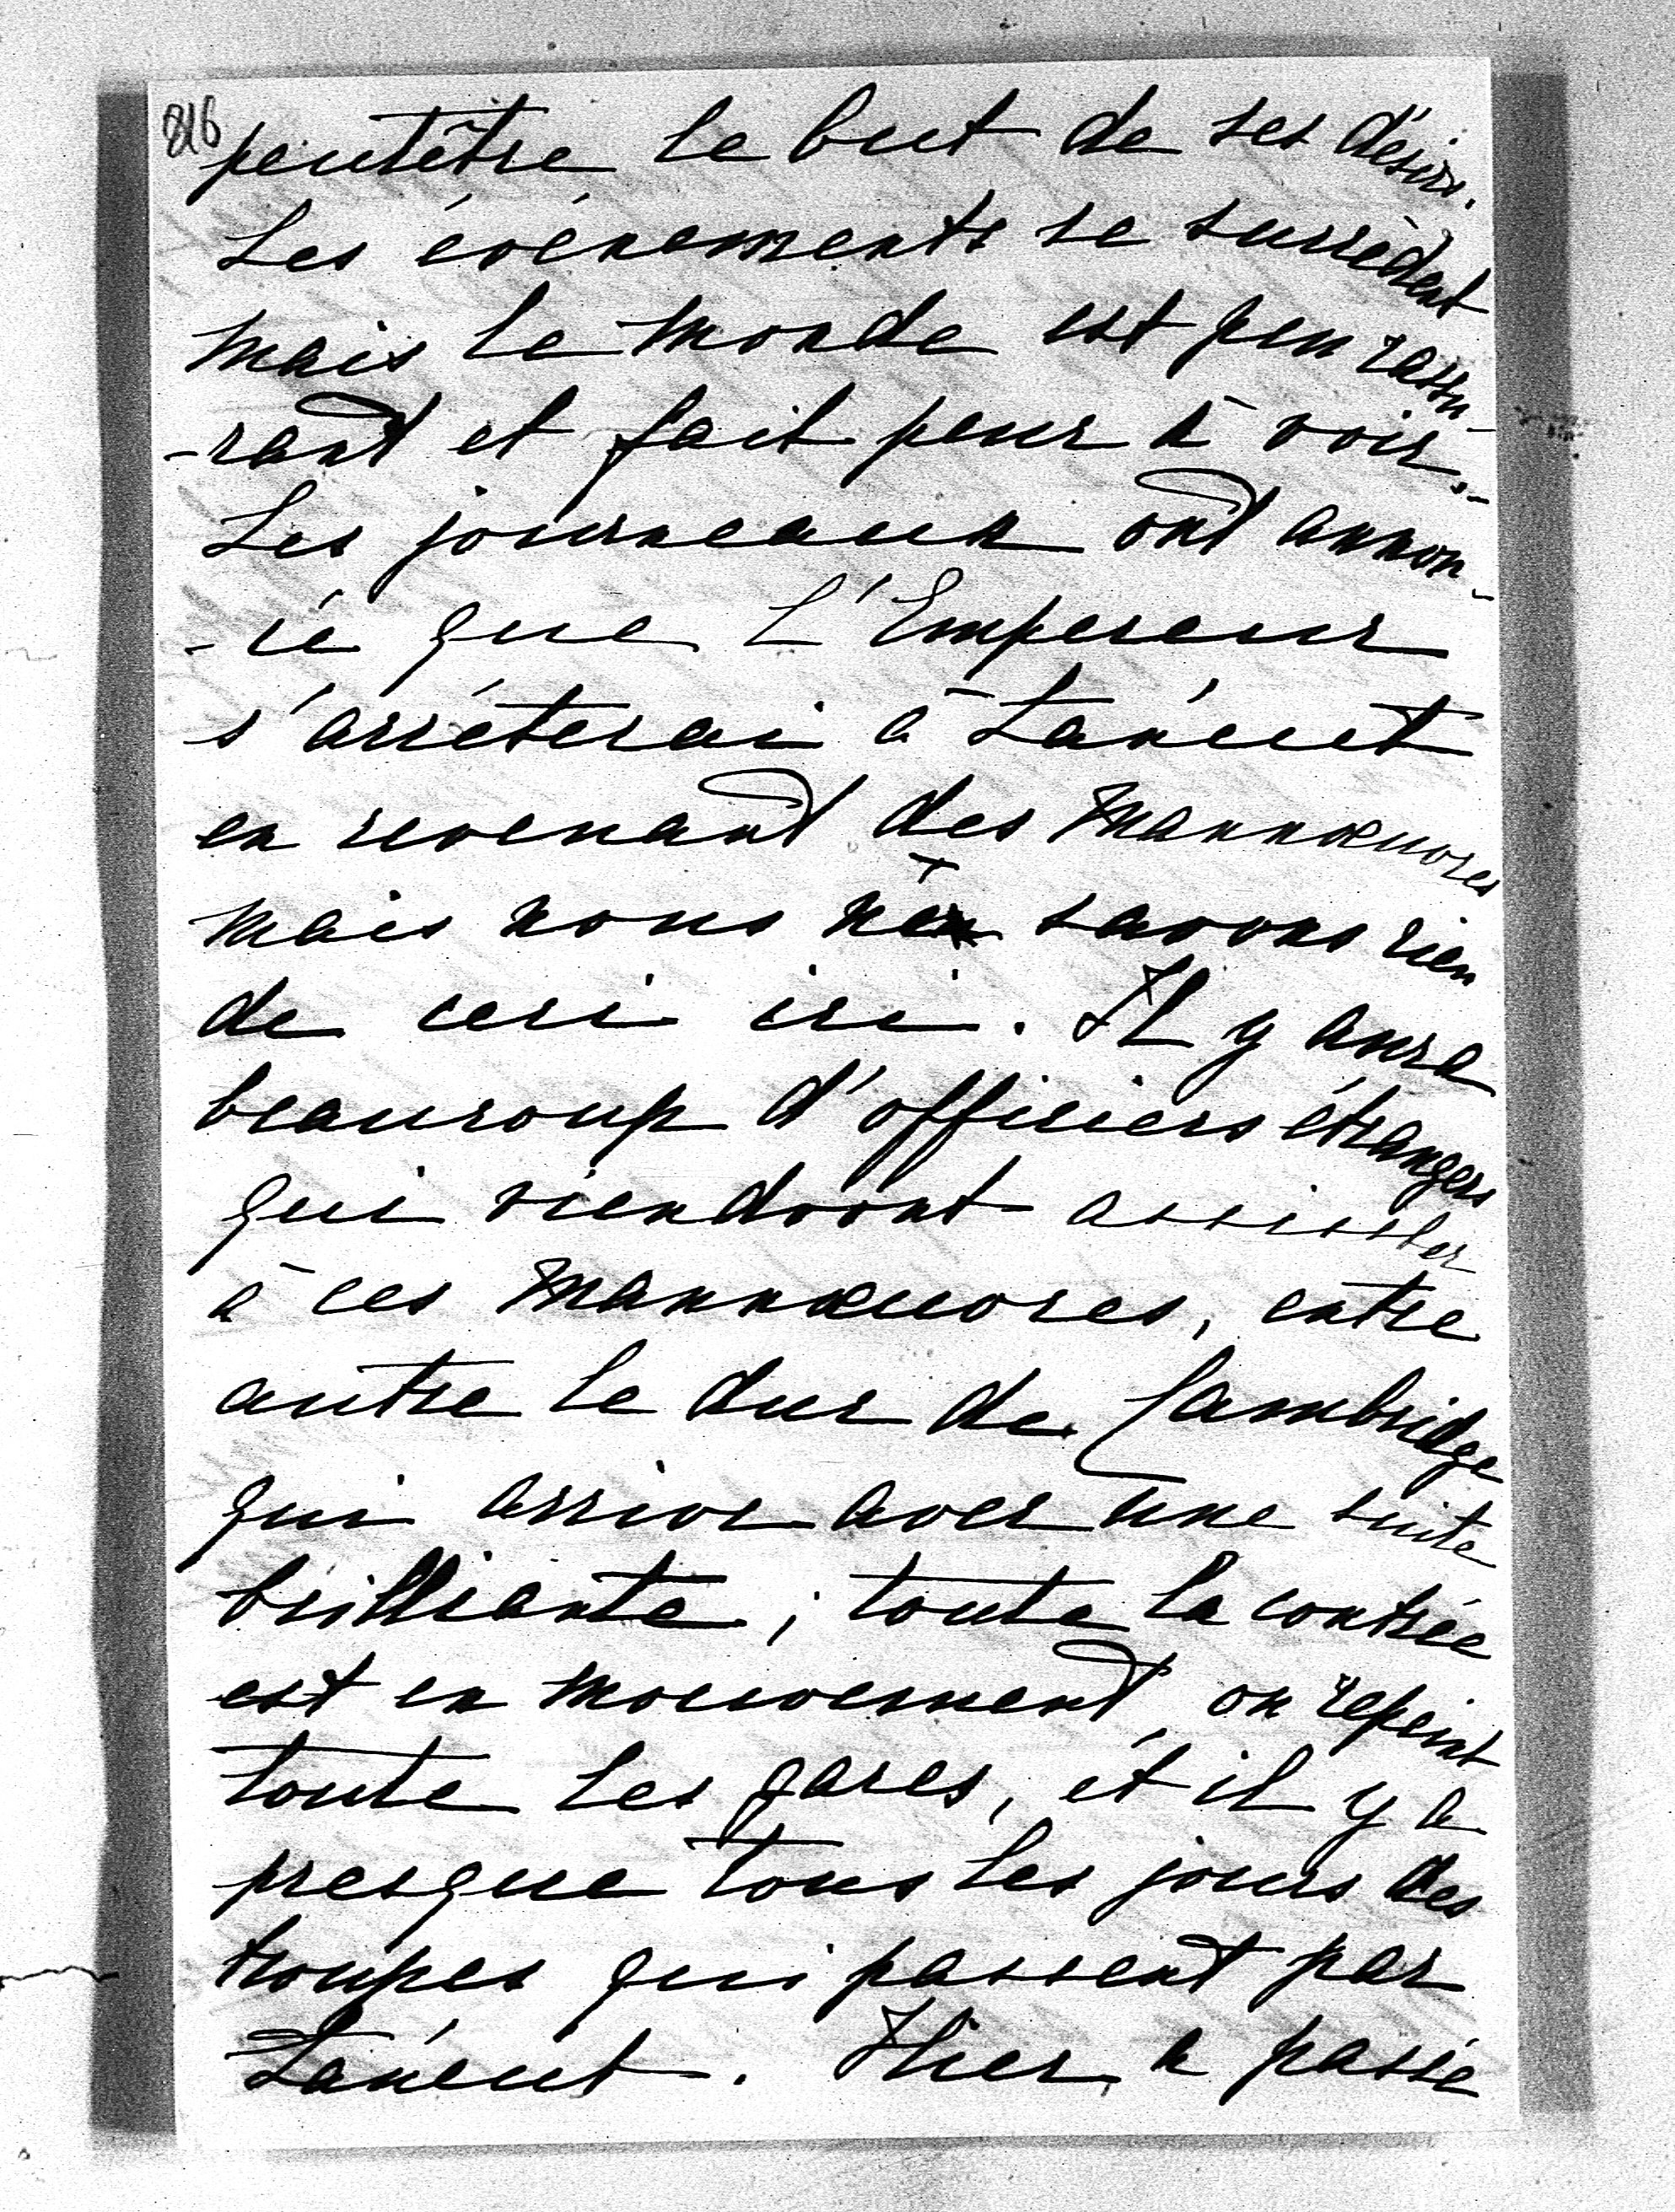 816
peutêtre le but de ses désirs.
Les événements se succèdent
mais le monde est peu rassu-
-rant et fait peur à voir.-
Les journeaux ont annon-
-cé que L'Empereur
s'arréterai à Łańcut
en revenant des Mannœuvres
mais nous n'en savons rien
de ceci ici. Il y aura
beaucoup d'officiers étrangers
qui viendront assister
à ces Mannœuvres, entre
autre le duc de Cambridge
qui arrive avec une suite
brilliante; toute la contrée
est en mouvement, on repeint
toute les gares, et il y a
presque tous les jours des
troupes qui passent par
Łańcut. Hier a passé